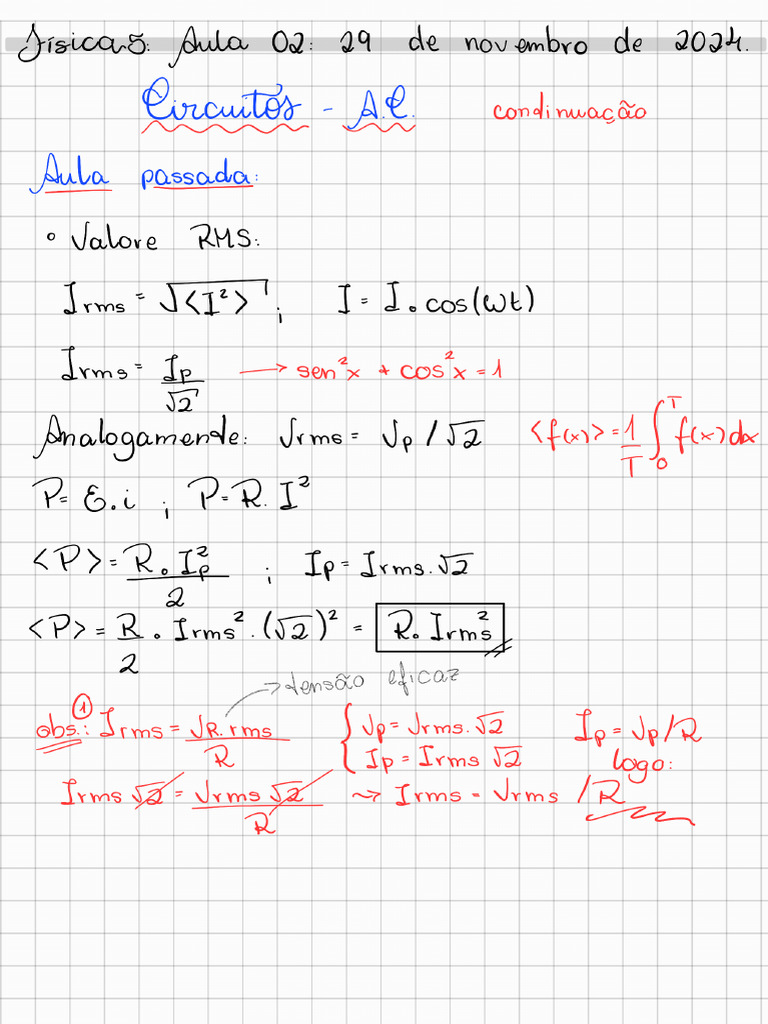 Física 5: Aula 02: 29 de novembro de 2024.
Circuitos - A.C. condinuação
Aula passada:
• Valore RMS:
Irms = √<I²> ; I = I₀ cos(ωt)
Irms = Ip/√2 → sen²x + cos²x = 1
Analogamende: Vrms = Vp / √2 <f(x)> = 1/T ∫₀ᵀ f(x) dx
P = ε.i ; P = R. I²
<P> = R. Ip²/2 ; Ip = Irms.√2
<P> = R/2 . Irms² . (√2)² = R. Irms²
→ densão eficaz
obs.: ① Irms = VR.rms/R { Vp = Vrms.√2 Ip = Vp/R
Ip = Irms √2 logo:
Irms √2 = Vrms √2/R ⤳ Irms = Vrms /R